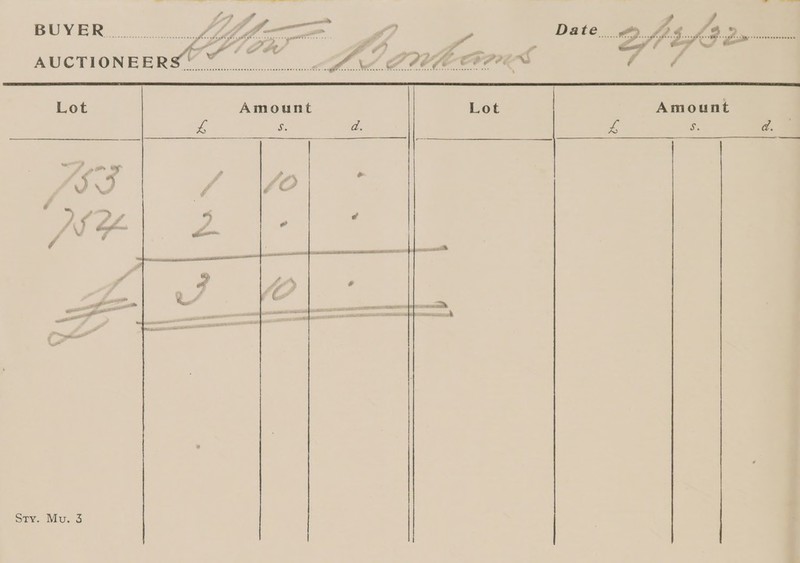 BUYER Stow Date 2/12/32
AUCTIONEERS Bonhams
Lot Amount Lot Amount
£ s. d. £ s. d.
753 1 10 •
754 2 • •
£ 3 10 •
STY. MU. 3